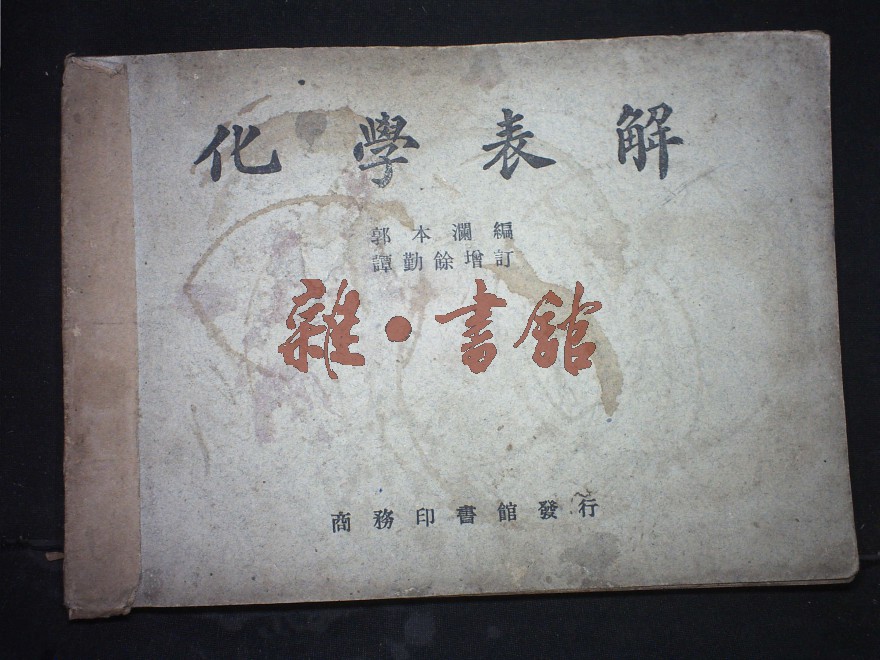 化學表解
郭本瀾編
譚勤餘增訂
雜·書館
商務印書館發行